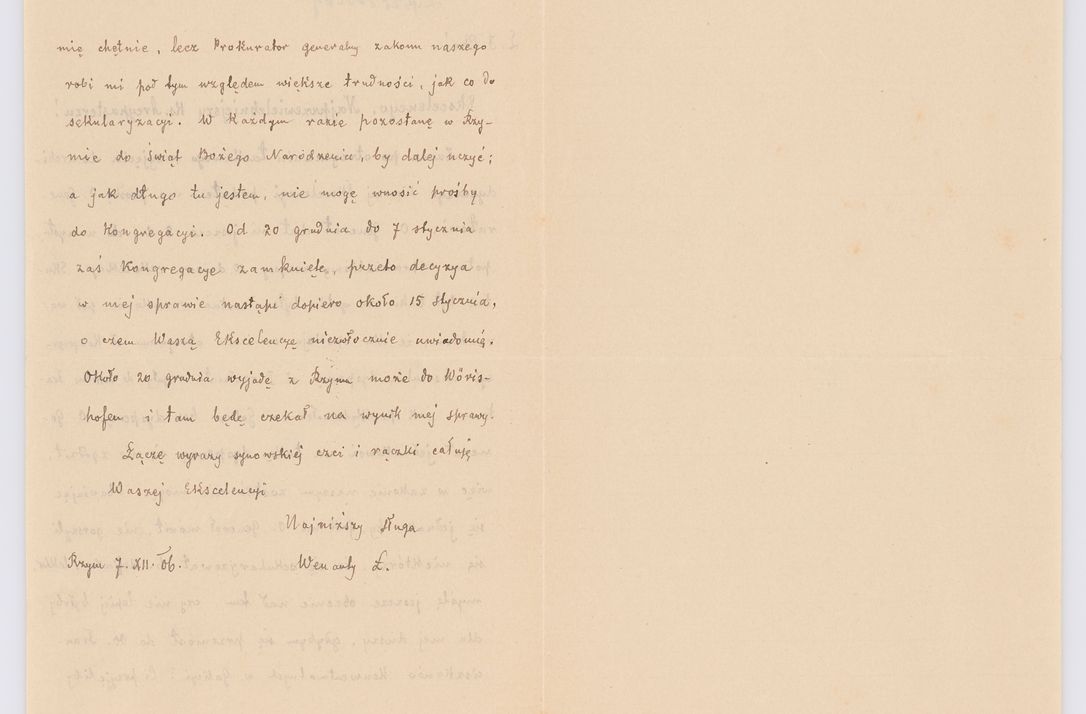 mię chętnie, lecz Prokurator generalny zakonu naszego
robi mi pod tym względem większe trudności, jak co do
sekularyzacyi. W każdym razie pozostanę w Rzy-
mie do świąt Bożego Narodzenia, by dalej uczyć;
a jak długo tu jestem, nie mogę wnosić prośby
do Kongregacyi. Od 20 grudnia do 7 stycznia
zaś Kongregacye zamknięte, przeto decyzya
w mej sprawie nastąpi dopiero około 15 stycznia,
o czem Waszą Ekscelencyę niezwłocznie uwiadomię.
Około 20 grudnia wyjadę z Rzymu może do Wöris-
hofen i tam będę czekał na wynik mej sprawy.
Łączę wyrazy synowskiej czci i rączki całuję
Waszej Ekscelencyi
Najniższy sługa
Rzym 7. XII. 06. Wenanty Ł.